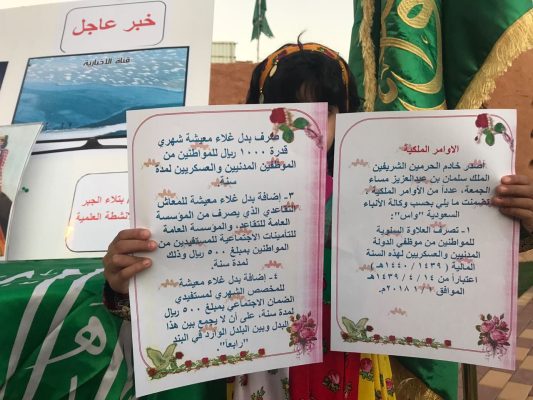 خبر عاجل
قناة الأخبارية
بتلاء الجبر
الأنشطة العلمية
الاوامر الملكية
أصدر خادم الحرمين الشريفين
الملك سلمان بن عبدالعزيز مساء
الجمعة، عدداً من الأوامر الملكية
تضمنت ما يلي بحسب وكالة الأنباء
السعودية "واس":
١- تصرف العلاوة السنوية
للمواطنين من موظفي الدولة
المدنيين والعسكريين لهذه السنة
المالية (١٤٣٩ / ١٤٤٠هـ)
اعتباراً من ١٤ / ٤ / ١٤٣٩هـ
الموافق ٢٠١٨م.
صرف بدل غلاء معيشة شهري
قدرة ١٠٠٠ ريال للمواطنين من
الموظفين المدنيين والعسكريين لمدة
سنة.
٣- إضافة بدل غلاء معيشة للمعاش
التقاعدي الذي يصرف من المؤسسة
العامة للتقاعد، والمؤسسة العامة
للتأمينات الاجتماعية للمستفيدين من
المواطنين بمبلغ ٥٠٠ ريال وذلك
لمدة سنة.
٤- إضافة بدل غلاء معيشة
للمخصص الشهري لمستفيدي
الضمان الاجتماعي بمبلغ ٥٠٠ ريال
لمدة سنة، على أن لا يجمع بين هذا
البدل وبين البلدل الوارد في البند
"رابعاً".